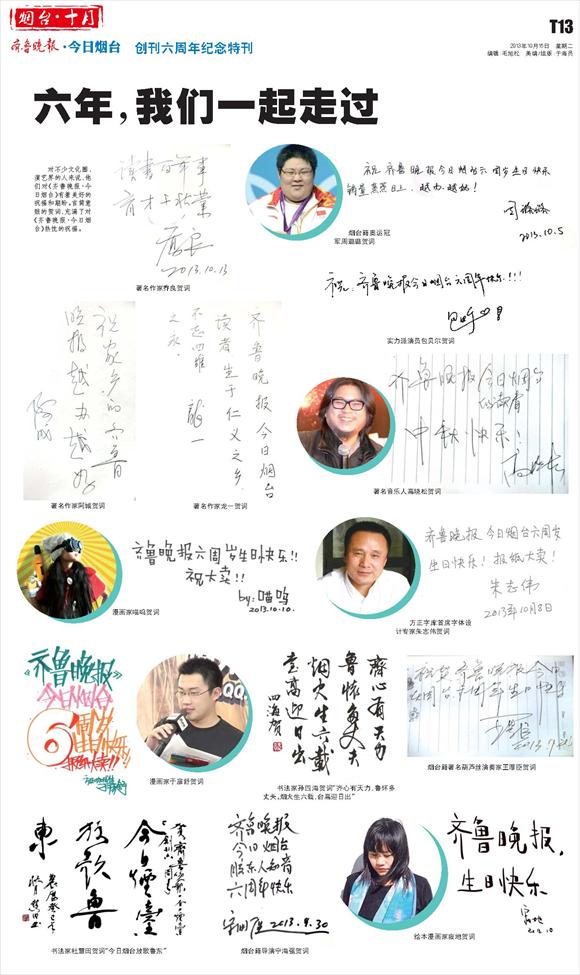 烟台·十月
T13
齐鲁晚报·今日烟台 创刊六周年纪念特刊
2013年10月15日 星期二
六年，我们一起走过
对不少文化圈、
演艺界的人来说，他
们对《齐鲁晚报·今
日烟台》有着美好的
祝福和期盼。言简意
赅的贺词，充满了对
《齐鲁晚报·今日烟
台》热忱的祝福。
读书百年事
育才千秋业
2013.10.13
著名作家乔良贺词
祝齐鲁晚报今日烟台六周岁生日快乐
销量蒸蒸日上，越办越好！
2013.10.5
烟台籍奥运冠
军周璐璐贺词
祝：齐鲁晚报今日烟台六周年快乐!!!
实力派演员包贝尔贺词
祝家乡的齐鲁
晚报越办越好
阿成
著名作家阿城贺词
齐鲁晚报今日烟台
读者生于仁义之乡，
不忘四维
龙一
著名作家龙一贺词
齐鲁晚报今日烟台
的读者
中秋快乐！
高晓松
著名音乐人高晓松贺词
齐鲁晚报六周岁生日快乐!!
祝大卖!!
by:喵呜
2013.10.10
漫画家喵呜贺词
齐鲁晚报今日烟台六周岁
生日快乐！报纸大卖！
朱志伟
2013年10月8日
方正字库首席字体设
计专家朱志伟贺词
《齐鲁晚报》
今日烟台
6周岁
生日快乐!!
报纸大卖!!
漫画家于彦舒贺词
齐心有天力
鲁怀多丈夫
烟火生六载
台高迎日出
四海贺
书法家孙四海贺词“齐心有天力，鲁怀多
丈夫，烟火生六载，台高迎日出”
2013.9.
烟台籍著名葫芦丝演奏家王厚臣贺词
今日烟台
放歌鲁
东
书法家杜慧田贺词“今日烟台放歌鲁东”
齐鲁晚报
今日烟台
胶东人知音
六周年快乐
宁海强 2013.9.30
烟台籍导演宁海强贺词
齐鲁晚报，
生日快乐
寂地
绘本漫画家寂地贺词